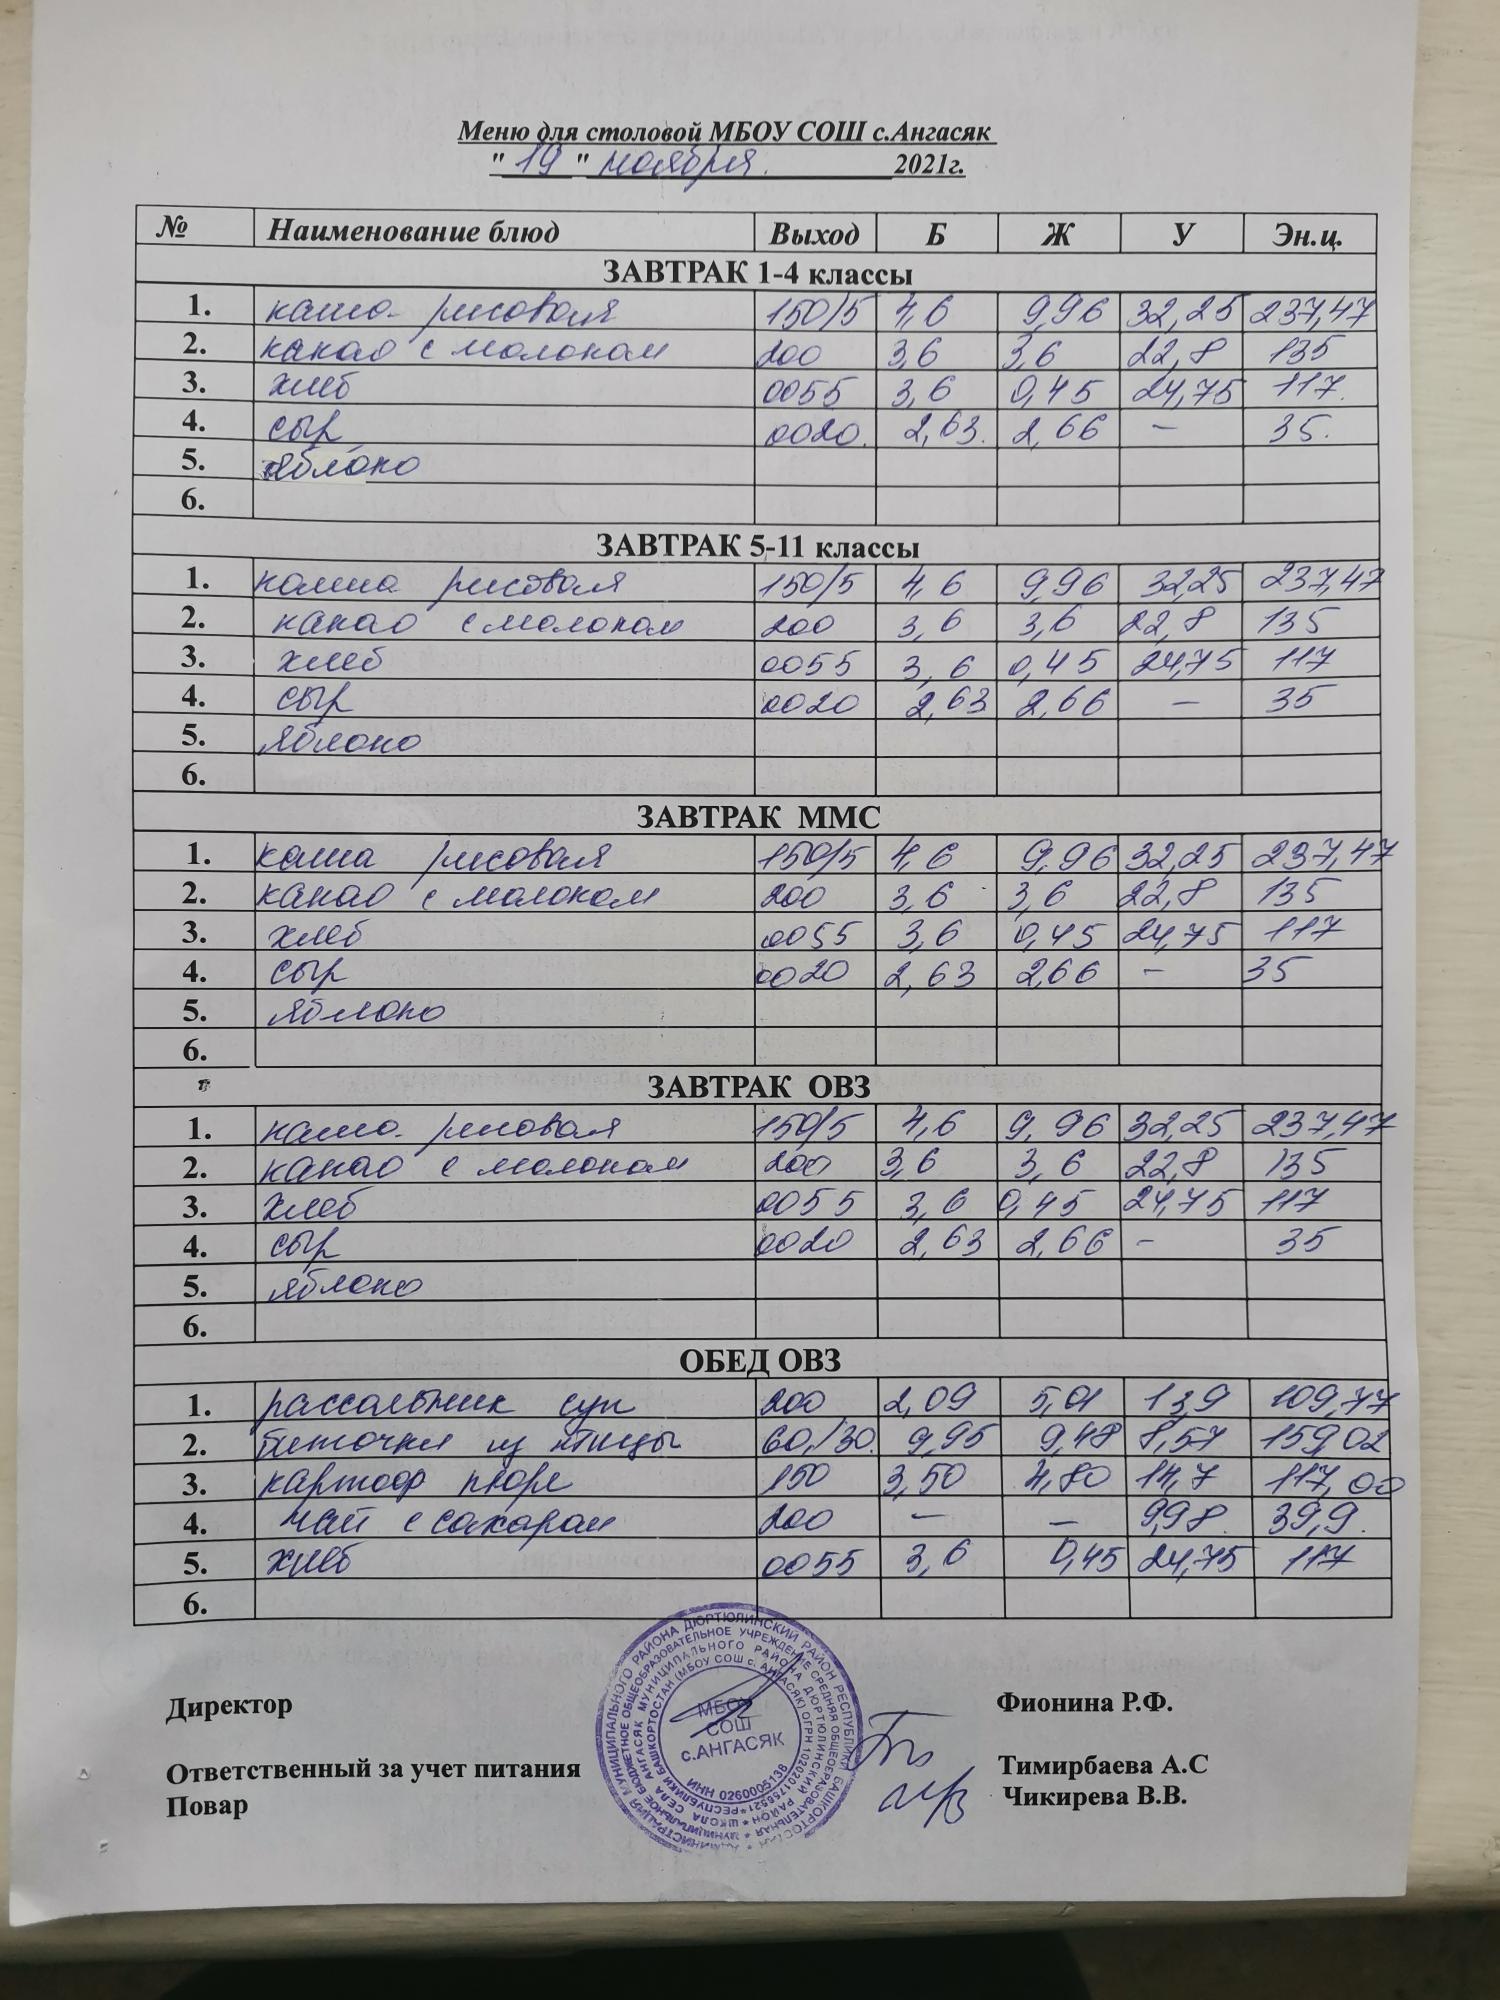 Меню для столовой МБОУ СОШ с.Ангасяк
"19" ноября. 2021г.
№ Наименование блюд Выход Б Ж У Эн.ц.
ЗАВТРАК 1-4 классы
1. каша рисовая 150/5 4,6 9,96 32,25 237,47
2. какао с молоком 200 3,6 3,6 22,8 135
3. хлеб 0055 3,6 0,45 24,75 117.
4. сыр 0020. 2,63. 2,66 – 35.
5. яблоко
6.
ЗАВТРАК 5-11 классы
1. каша рисовая 150/5 4,6 9,96 32,25 237,47
2. какао с молоком 200 3,6 3,6 22,8 135
3. хлеб 0055 3,6 0,45 24,75 117
4. сыр 0020 2,63 2,66 – 35
5. яблоко
6.
ЗАВТРАК ММС
1. каша рисовая 150/5 4,6 9,96 32,25 237,47
2. какао с молоком 200 3,6 3,6 22,8 135
3. хлеб 0055 3,6 0,45 24,75 117
4. сыр 0020 2,63 2,66 – 35
5. яблоко
6.
ЗАВТРАК ОВЗ
1. каша рисовая 150/5 4,6 9,96 32,25 237,47
2. какао с молоком 200 3,6 3,6 22,8 135
3. хлеб 0055 3,6 0,45 24,75 117
4. сыр 0020 2,63 2,66 – 35
5. яблоко
6.
ОБЕД ОВЗ
1. рассольник суп 200 2,09 5,01 13,9 109,77
2. биточки из птицы 60/30. 9,95 9,48 8,57 159,02
3. картоф пюре 150 3,50 4,80 14,7 117,00
4. чай с сахаром 200 – – 9,98. 39,9.
5. хлеб 0055 3,6 0,45 24,75 117
6.
Директор Фионина Р.Ф.
Ответственный за учет питания Тимирбаева А.С
Повар Чикирева В.В.
МБОУ
СОШ
с.АНГАСЯК
ИНН 0260005138